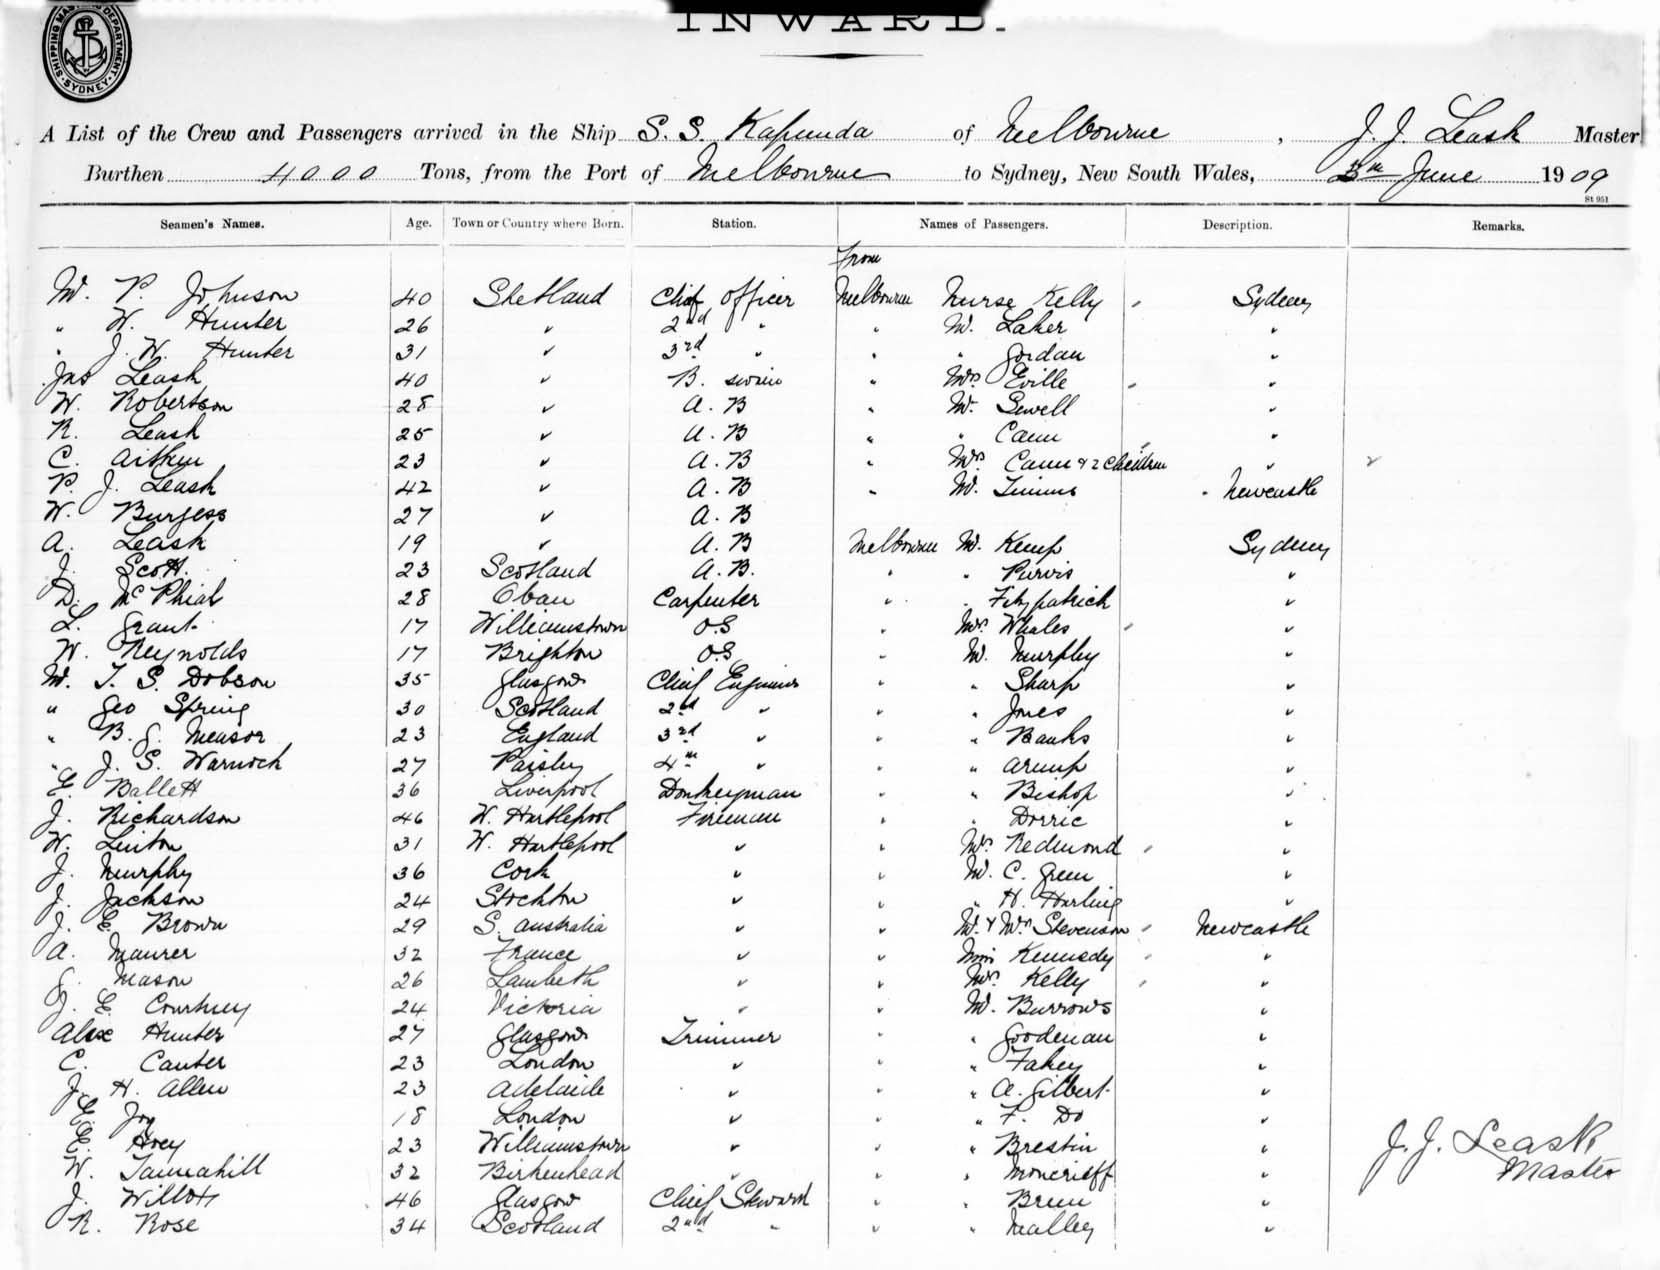 SHIPPING MASTER'S DEPARTMENT SYDNEY
INWARD.
A List of the Crew and Passengers arrived in the Ship S. S. Kapunda of Melbourne, J. J. Leask Master
Burthen 4000 Tons, from the Port of Melbourne to Sydney, New South Wales, June 1909
St 951
Seamen's Names. Age. Town or Country where Born. Station. Names of Passengers. Description. Remarks.
From
Mr. P. Johnson 40 Shetland Chief Officer Melbourne Nurse Kelly Sydney
" W. Hunter 26 " 2nd " " Mr. Laker "
" J. W. Hunter 31 " 3rd " " " Jordan "
Jas Leask 40 " B. " Mrs Eville "
W. Robertson 28 " A. B " Mr. Sewell "
R. Leask 25 " A. B " " Cann "
C. Aitken 23 " A. B " Mrs Cann & 2 Children "
P. J. Leask 42 " A. B " Mr. Timms " Newcastle
W. Burgess 27 " A. B
A. Leask 19 " A. B Melbourne Mr. Kemp Sydney
J. Scott. 23 Scotland A. B. " " Purvis "
D. McPhial 28 Oban Carpenter " " Fitzpatrick "
L. Grant. 17 Williamstown O.S " Mrs Whales "
W. Reynolds 17 Brighton O.S " Mr. Murphy "
Mr. T. S. Dobson 35 Glasgow Chief Engineer " " Sharp "
" Geo Spring 30 Scotland 2nd " " " Jones "
" B. G. Measor 23 England 3rd " " " Banks "
" J. S. Warnock 27 Paisley 4th " " " "
E. Ballett 36 Liverpool Donkeyman " " Bishop "
J. Richardson 46 W. Hartlepool Fireman " " Dorric "
W. Linton 31 W. Hartlepool " " Mrs Redmond "
J. Murphy 36 Cork " " Mr. C. Green "
J. Jackson 24 Stockton " " " H. Harling "
J. E. Brown 29 S. Australia " " Mr. & Mrs Stevenson Newcastle
A. Maurer 32 France " " Miss Kennedy "
G. Mason 26 Lambeth " " Mrs. Kelly "
J. E. Courtney 24 Victoria " " Mr. Burrows "
Alex Hunter 27 Glasgow Trimmer " " Goodenau "
C. Canter 23 London " " " Fahey "
J. H. Allen 23 Adelaide " " " A. Gilbert. "
E. Joy 18 London " " " F. Do "
E. Hoey 23 Williamstown " " " Brestin "
W. Tannahill 32 Birkenhead " " " Moncrieff "
J. Willott 46 Glasgow Chief Steward " " Breen "
R. Rose 34 Scotland 2nd " " " Malley "
J. J. Leask
Master